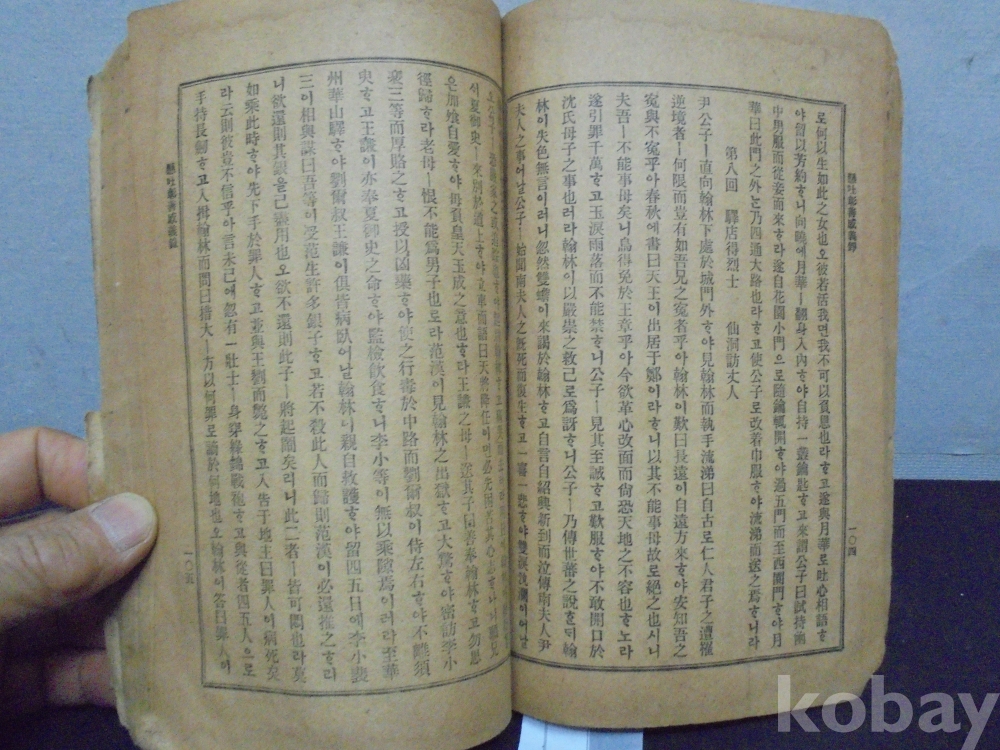 懸吐彰善感義錄
一〇四
로何以生如此之女也오彼若活我면我不可以負恩也라ᄒᆞ고遂與月華로吐心相語ᄒᆞ
야留以芳約ᄒᆞ니向晩에月華ㅣ翻身入內ᄒᆞ야自持一叢鑰匙ᄒᆞ고來謂公子曰試持幽
中男服而從妾而來ᄒᆞ라遂自花園小門으로隨鑰輒開ᄒᆞ야過五門而至西閣門ᄒᆞ야月
華曰此門之外ᄂᆞᆫ乃四通大路也라ᄒᆞ고使公子로改着巾服ᄒᆞ야流涕而送之焉ᄒᆞ니라
第八回 驛店得烈士 仙洞訪丈人
尹公子ㅣ直向翰林下處於城門外ᄒᆞ야見翰林而執手流涕曰自古로仁人君子之遭罹
逆境者ㅣ何限而豈有如吾兄之冤者乎아翰林이歎曰長遠이自遠方來ᄒᆞ야安知吾之
冤與不冤乎아春秋에書曰天王이出居于鄭이라ᄒᆞ니以其不能事母故로絕之也시니
夫吾ㅣ不能事母矣니烏得免於王章乎아今欲革心改面而尙恐天地之不容也ᄒᆞ노라
遂引罪千萬ᄒᆞ고玉淚雨落而不能禁ᄒᆞ니公子ㅣ見其至誠ᄒᆞ고歎服ᄒᆞ야不敢開口於
沈氏母子之事也러라翰林이以嚴崇之救己로爲訝ᄒᆞ니公子ㅣ乃傳世蕃之說ᄒᆞᆫ되翰
林이失色無言이러니忽然雙蟾이來謁於翰林ᄒᆞ고自言自紹興新到而泣傳南夫人尹
夫人之事어ᄂᆞᆯ公子ㅣ始聞南夫人之旣死而復生ᄒᆞ고一審一悲ᄒᆞ야雙淚
시夏御史ㅣ來別於道上ᄒᆞ야立車而語曰天將降任이민必先困苦其心志ᄒᆞᄂᆞ니願兄
은加飡自愛ᄒᆞ야毋負皇天玉成之意也ᄒᆞ라王謙之母ㅣ送其子曰善奉翰林ᄒᆞ고勿思
徑歸ᄒᆞ라老母ㅣ恨不能爲男子也로라范漢이見翰林之出獄ᄒᆞ고大驚ᄒᆞ야密訪李小
裵三等而厚賂之ᄒᆞ고授以凶藥ᄒᆞ야使之行毒於中路而劉爾叔이侍左右ᄒᆞ야不離須
臾ᄒᆞ고王謙이亦奉夏御史之命ᄒᆞ야監檢飮食ᄒᆞ니李小等이無以乘隙焉이러라至華
州華山驛ᄒᆞ야劉爾叔王謙이俱皆病臥어ᄂᆞᆯ翰林이親自救護ᄒᆞ야留四五日에李小裵
三이相與謀曰吾等이受范生許多銀子ᄒᆞ고若不殺此人而歸則范漢이必還推之ᄒᆞ리
니欲還則其銀을已喪用也오欲不還則此子ㅣ將起鬧矣리니此二者ㅣ皆可悶也라莫
如乘此時ᄒᆞ야先下手於罪人ᄒᆞ고並與王劉而斃之ᄒᆞ고入告于地主曰罪人이病死矣
라云則彼豈不信乎아言未已에忽有一壯士ㅣ身穿綠錦戰袍ᄒᆞ고與從者四五人으로
手持長劍ᄒᆞ고人揖翰林而問曰措大ㅣ方以何罪로謫於何地也오翰林이答曰罪人이
懸吐彰善感義錄
一〇五
kobay